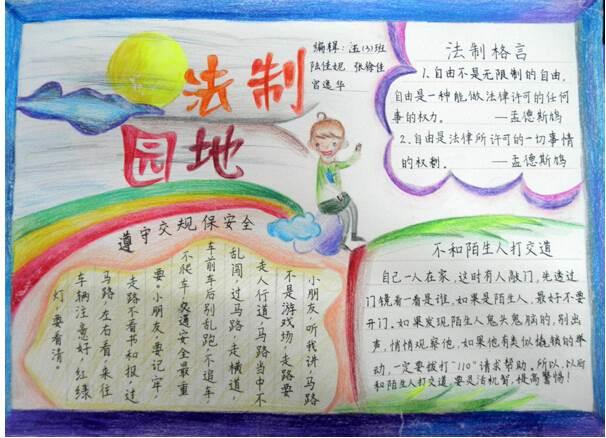 法制
园地
编辑：五(3)班
陆佳妮 张徐佳
宫逸华
法制格言
1.自由不是无限制的自由，
自由是一种能做法律许可的任何
事的权力。 —孟德斯鸠
2.自由是法律所许可的一切事情
的权利。 —孟德斯鸠
遵守交规保安全
小朋友，听我讲，马路
不是游戏场，走路要
走人行道，马路当中不
乱闯，过马路，走横道，
车前车后别乱跑，不追车
不爬车，交通安全最重
要。小朋友，要记牢，
走路不看书和报，过
马路，左右看，来往
车辆注意好，红绿
灯，要看清。
不和陌生人打交道
自己一人在家，这时有人敲门，先透过
门镜看一看是谁，如果是陌生人，最好不要
开门。如果发现陌生人鬼头鬼脑的，别出
声，悄悄观察他，如果他有类似撬锁的举
动，一定要拨打“110”请求帮助。所以，以后
和陌生人打交道，要灵活机智，提高警惕！